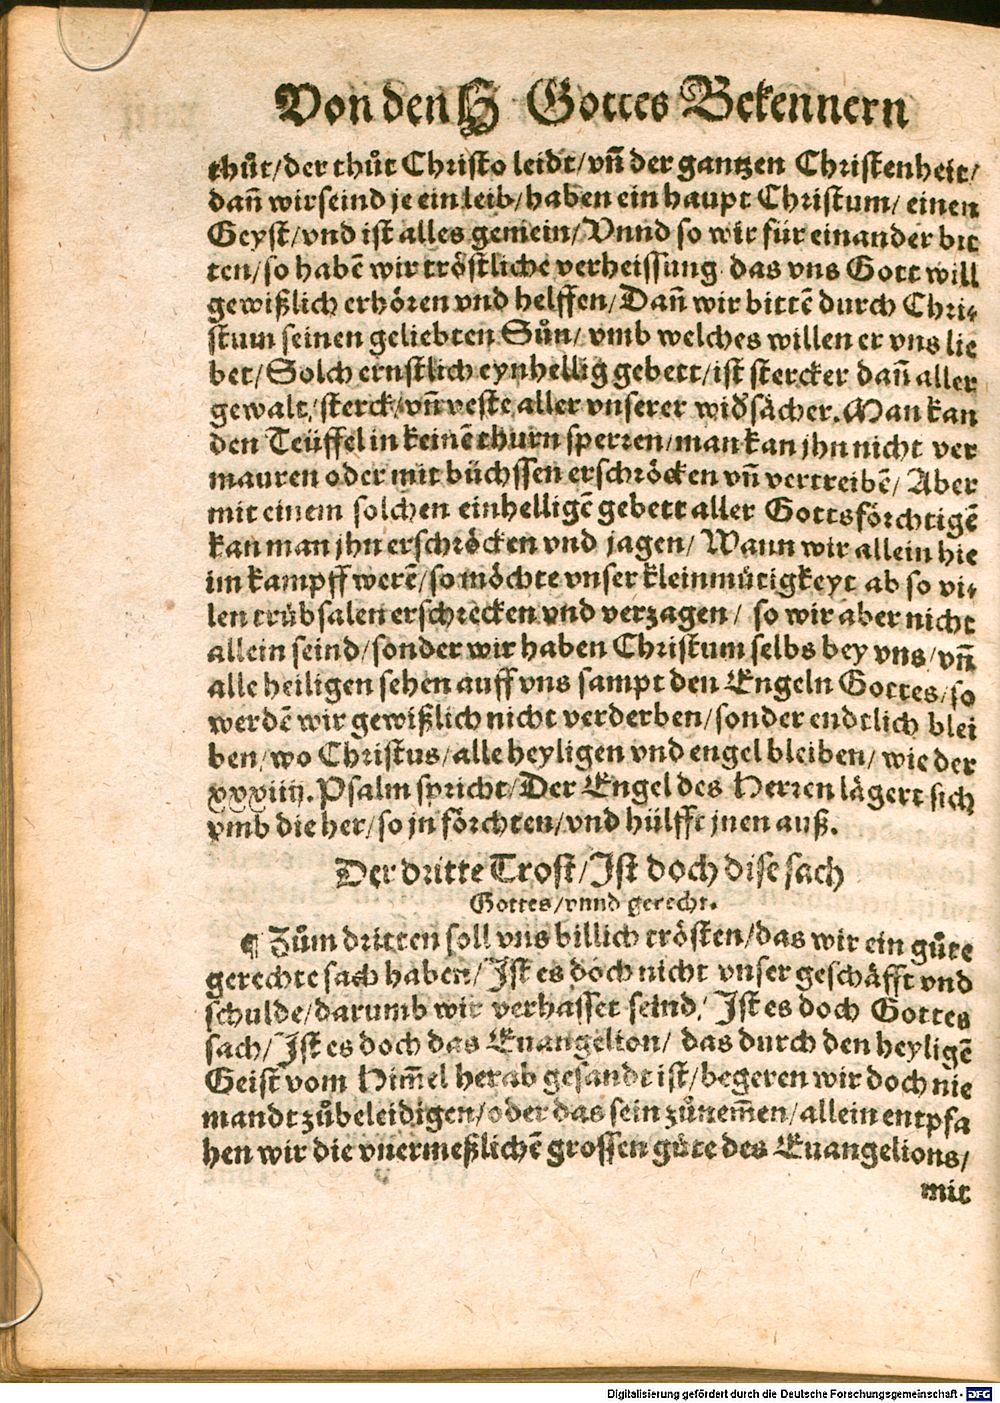 Von den H Gottes Bekennern
thůt/der thůt Christo leidt/vn̄ der gantzen Christenheit/
dan̄ wir seind je ein leib/haben ein haupt Christum/ einen
Geyst/vnd ist alles gemein/Vnnd so wir für einander bit
ten/so habē wir tröstliche verheissung das vns Gott will
gewißlich erhören vnd helffen/Dan̄ wir bittē durch Chri-
stum seinen geliebten Sůn/ vmb welches willen er vns lie
bet/Solch ernstlich eynhellig gebett/ist stercker dan̄ aller
gewalt/sterck/vn̄ veste aller vnserer wid̕sächer.Man kan
den Teüffel in keinē thurn sperren/man kan jhn nicht ver
mauren oder mit büchssen erschröcken vn̄ vertreibē/ Aber
mit einem solchen einhelligē gebett aller Gottsförchtigē
kan man jhn erschröcken vnd jagen/ Wann wir allein hie
im kampff werē/so möchte vnser kleinmütigkeyt ab so vi-
len trübsalen erschrecken vnd verzagen/ so wir aber nicht
allein seind/sonder wir haben Christum selbs bey vns/vn̄
alle heiligen sehen auff vns sampt den Engeln Gottes/so
werdē wir gewißlich nicht verderben/sonder endtlich blei
ben/wo Christus/alle heyligen vnd engel bleiben/ wie der
xxxiiij.Psalm spricht/Der Engel des Herren lägert sich
vmb die her/so jn förchten/vnd hülfft jnen auß.
Der dritte Trost/Ist doch dise sach
Gottes/vnnd gerecht.
¶ Zům dritten soll vns billich trösten/das wir ein gůte
gerechte sach haben/Ist es doch nicht vnser geschäfft vnd
schulde/darumb wir verhasset seind/ Ist es doch Gottes
sach/Ist es doch das Euangelion/ das durch den heyligē
Geist vom Him̄el herab gesandt ist/begeren wir doch nie
mandt zůbeleidigen/oder das sein zůnem̄en/allein entpfa
hen wir die vnermeßlichē grossen güte des Euangelions/
mit
Digitalisierung gefördert durch die Deutsche Forschungsgemeinschaft - DFG